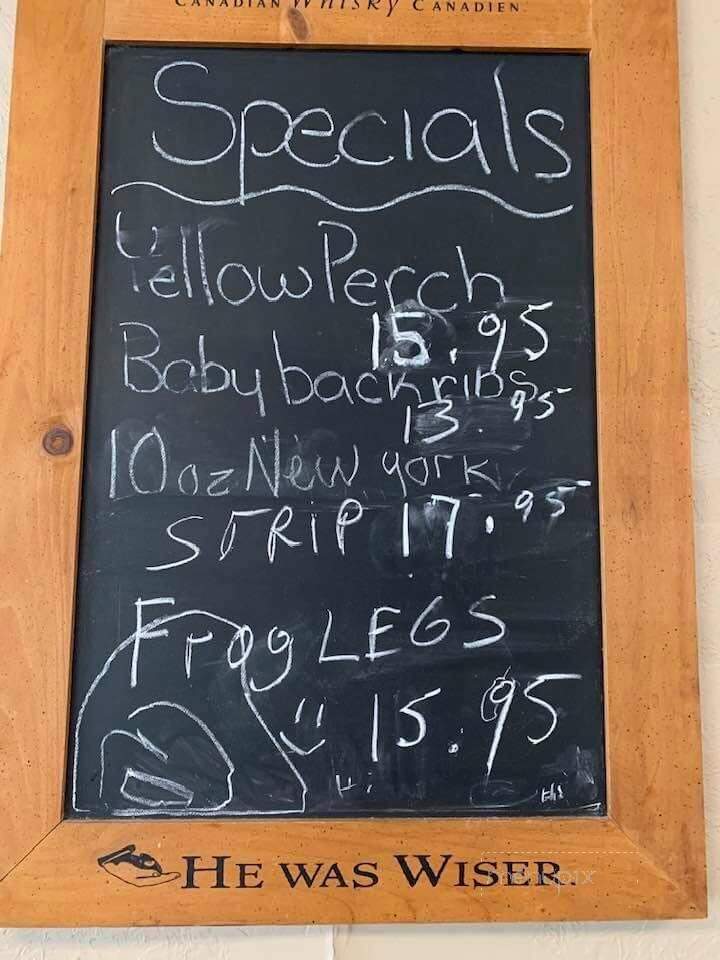 CANADIAN WHISKY CANADIEN
Specials
Yellow Perch
15.95
Baby back ribs
13.95
10oz New york
STRIP 17.95
Frog LEGS
15.95
Hi
HE WAS WISER.